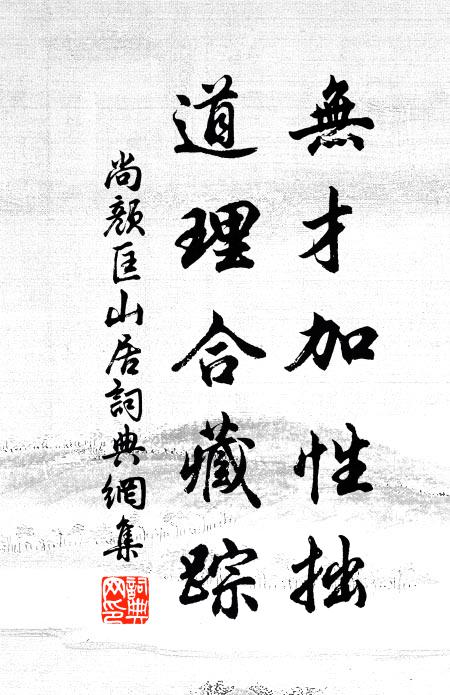 無才加性拙
道理合藏踪
尚顏匡山居詞典網集
詞典網印